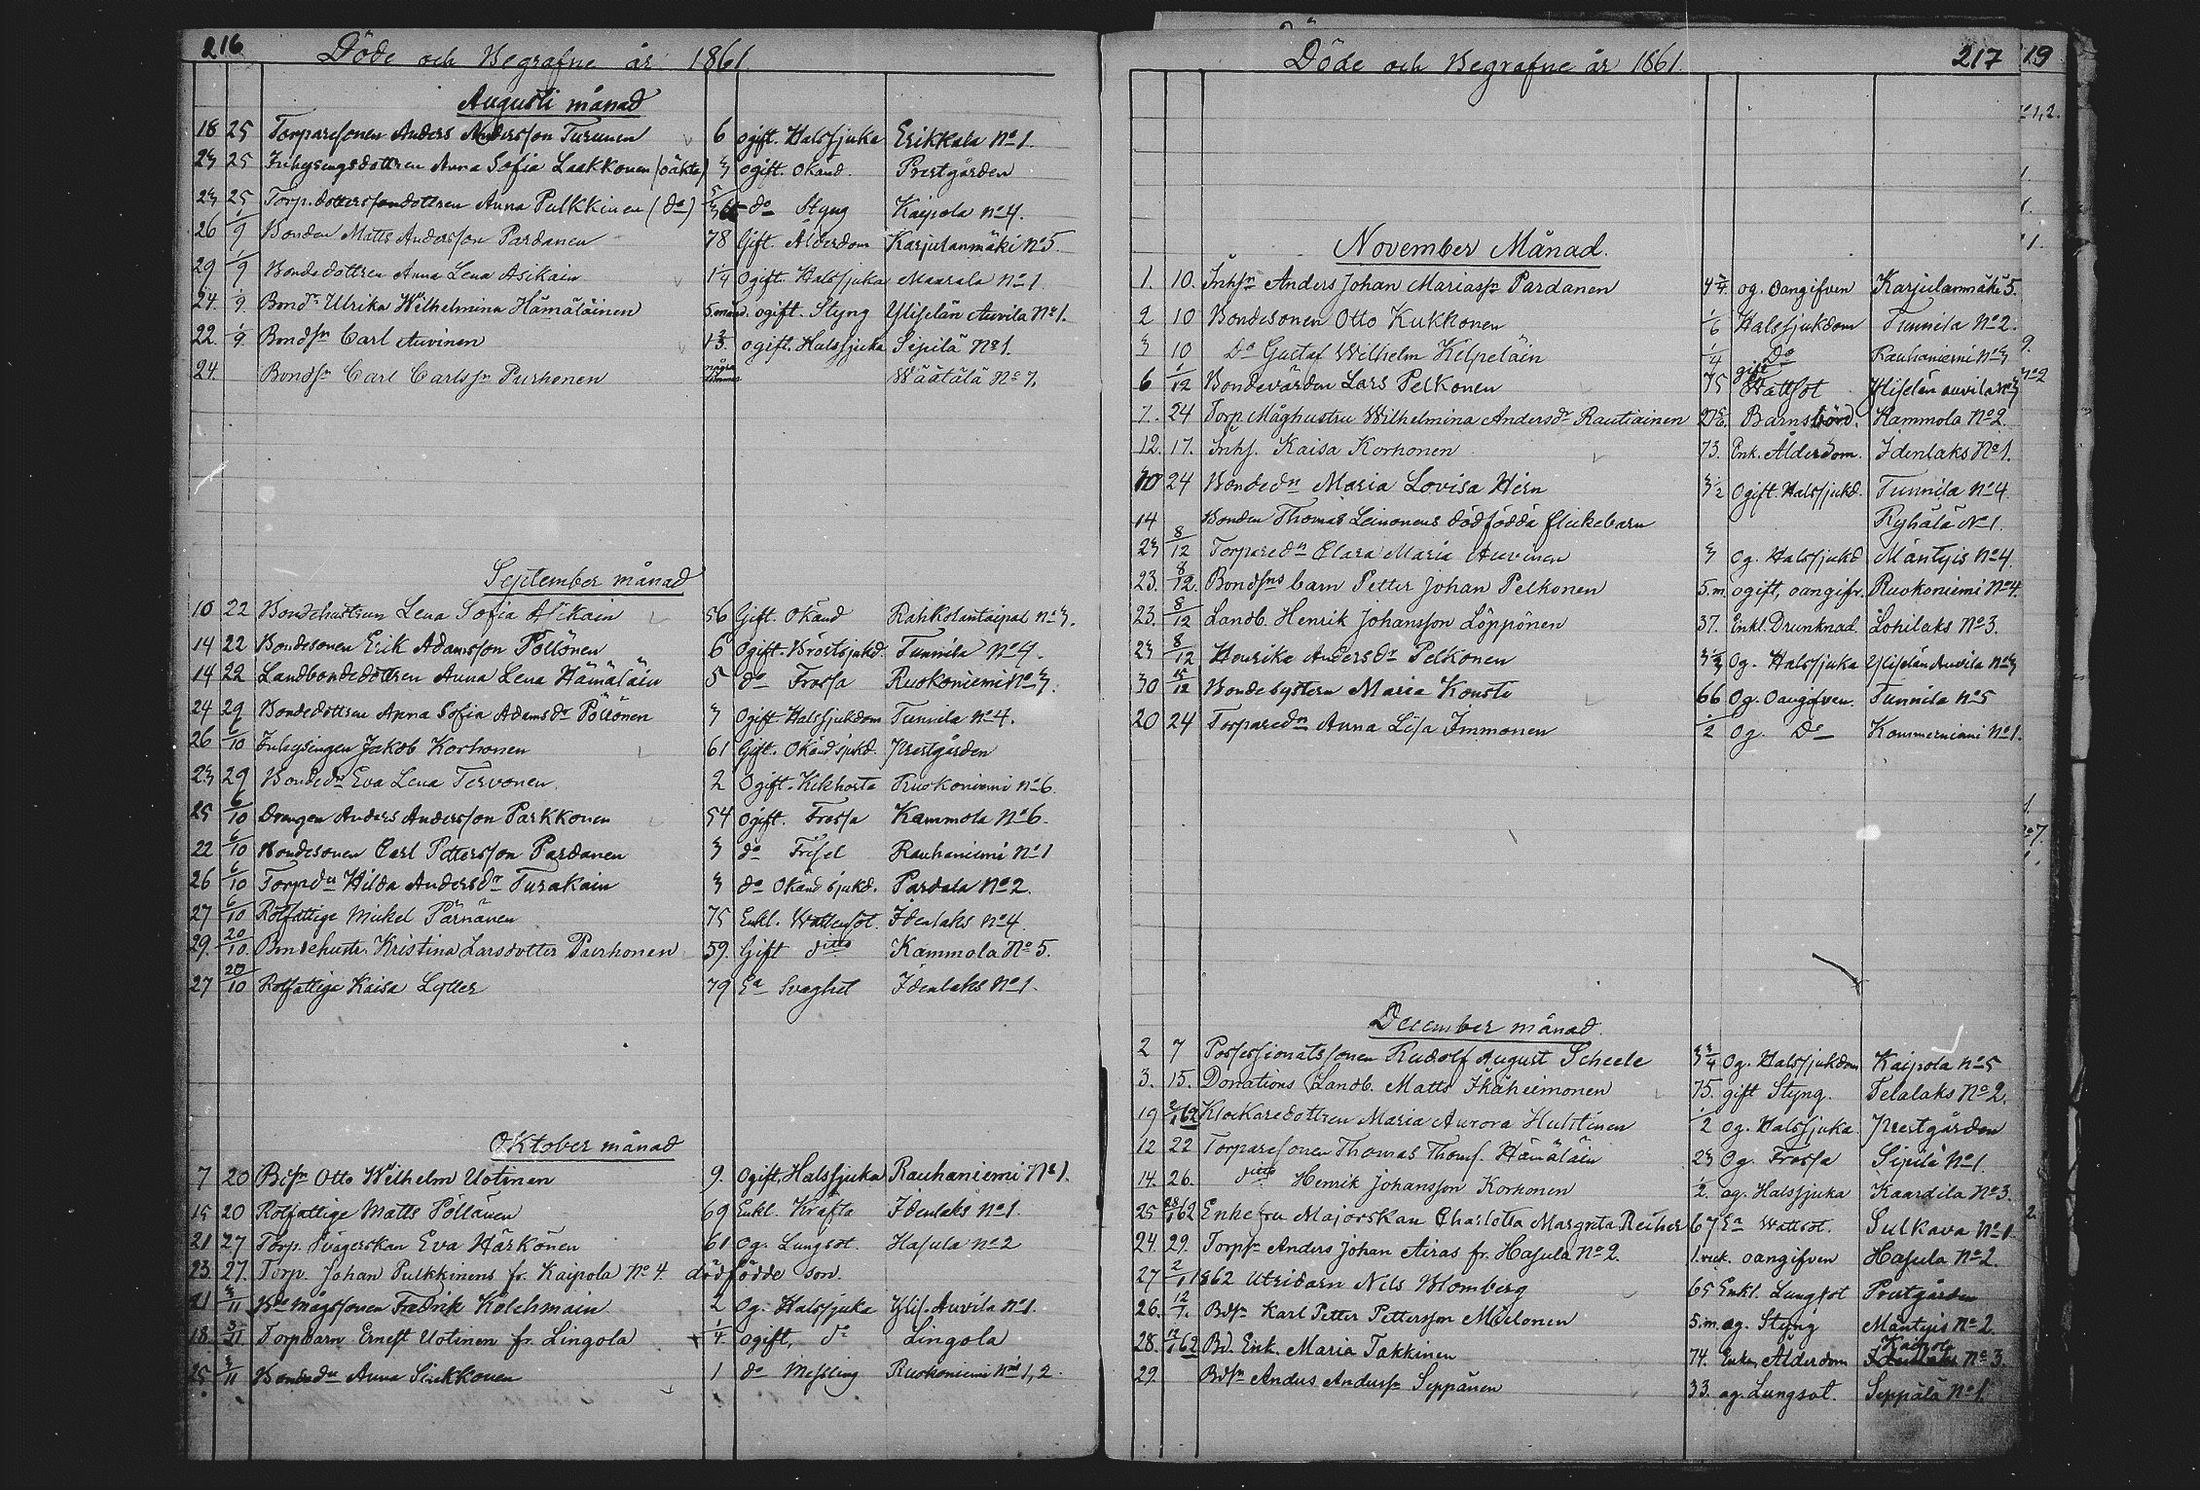 216
Döde och Begrafne år 1861.
Augusti månad
18 25 Torparesonen Anders Andersson Turunen 6 ogift. Halssjuka Erikkala No 1.
23 25 Inhysingsdottren Anna Sofia Laakkonen (oäkta) 3 ogift. Okänd. Prestgården
23 25 Torp.dotters dottren Anna Pulkkinen (do) do Styng Kaipola No 4.
26 1/9 Bonden Matts Andersson Pardanen 78 Gift. Ålderdom Karjulanmäki No 5.
29 1/9 Bondedottren Anna Lena Asikain 1 1/4 Ogift. Halssjuka Maarala No 1.
24. 1/9. Bondr Ulrika Wilhelmina Hämäläinen 5. månad. ogift. Styng Ylisjelän Auvila No 1.
22. 1/9. Bondsn Carl Auvinen 1 2/3. ogift. Halssjuka Sipilä No 1.
24. Bondsn Carl Carlssn Purhonen några timmar Wäätälä No 7.
September månad
10 22 Bondehustrun Lena Sofia Asikain 56 Gift. Okänd Rahkolantaipal No 3.
14 22 Bondesonen Erik Adamsson Pöllönen 6 Ogift. Bröstsjukd. Tunnila No 4.
14 22 Landbondedottren Anna Lena Hämäläin 5 do Frossa Ruokoniemi No 3.
24 29 Bondedottren Anna Sofia Adamsdr Pöllönen 3 Ogift. Halssjukdom Tunnila No 4.
26 6/10 Inhysingen Jakob Korhonen 61 Gift. Okänd sjukd. Prestgården
23 29 Bondedr Eva Lena Tervonen. 2 Ogift. Kikhosta Ruokoniemi No 6.
25 6/10 Drengen Anders Andersson Parkkonen 54 ogift. Frossa Kammola No 6.
22 6/10 Bondesonen Carl Pettersson Pardanen 3 do Frisel Rauhaniemi No 1
26 6/10 Torpdn Hilda Andersdr Turakain 3 do Okänd sjukd. Pardala No 2.
27 6/10 Rotfattige Mickel Pärnänen 75 Enkl. Wattensot. Idenlaks No 4.
29. 20/10. Bondehustr. Kristina Larsdotter Purhonen 59. Gift ditto Kammola No 5.
27 20/10 Rotfattige Kaisa Lyller 79 Ea Svaghet Idenlaks No 1.
Oktober månad
7 20 Bdsn Otto Wilhelm Uotinen 9. Ogift. Halssjuka Rauhaniemi No 1.
15 20 Rotfattige Matts Pöllänen 69 Enkl. Kräfta Idenlaks No 1.
21 27 Torp. Svägerskan Eva Härkönen 61 Og. Lungsot. Hasula No 2
23. 27. Torp. Johan Pulkkinens fr. Kaipola No 4. dödfödde son.
21 3/11 Bde mågssonen Fredrik Kolehmain 2 Og. Halssjuka Ylis. Auvila No 1.
18. 3/11 Torpbarn Ernest Uotinen fr. Lingola 1/4 ogift, do Lingola
25 3/11 Bondedn Anna Sinkkonen 1 do Messling Ruokoniemi No 1, 2.
Döde och Begrafne år 1861. 217
November Månad.
1. 10. Inhsn Anders Johan Mariassn Pardanen 4 3/4. og. Oangifven Karjulanmäki 5.
2 10 Bondesonen Otto Kukkonen 1/6 Halssjukdom Tunnila No 2.
3 10 Do Gustaf Wilhelm Kilpeläin 1/4 Do Rauhaniemi No 3
6 1/12 Bondevärden Lars Pelkonen 75 gift Wattsot Ylisjelän auvila No 3
7. 24 Torp. Måghustru Wilhelmina Andersdr Rautiainen Barnsbörd. Kammola No 2.
12. 17. Inhs. Kaisa Korhonen 73. Enk. Ålderdom. Idenlaks No 1.
10 24 Bondedn Maria Lovisa Hirn 3 1/2 Ogift. Halssjukd. Tunnila No 4
14 Bonden Thomas Leinonens dödfödda flickebarn Ryhälä No 1.
23 8/12 Torparedn Clara Maria Auvinen 3 Og. Halssjukd Mäntyis No 4.
23. 8/12. Bondsns barn Petter Johan Pelkonen 5. m. ogift, oangifv. Ruokoniemi No 4.
23. 8/12 Landb. Henrik Johansson Löppönen 37. Enkl. Drunknad. Lohilaks No 3.
23 8/12 Henrika Andersdr Pelkonen 3 1/3 Og. Halssjuka Ylisjelän Auvila No 3
30 15/12 Bondesystern Maria Konsti 66 Og. Oangifven. Tunnila No 5
20 24 Torparedn Anna Lisa Immonen 1/2 Og. Do Kommerniemi No 1.
December månad.
2 7 Possessionatssonen Rudolf August Scheele 3 3/4 Og. Halssjukdom Kaipola No 5
3. 15. Donations Landb. Matts Ikäheimonen 75. gift Styng. Telalaks No 2.
19 2/1 62 Klockaredottren Maria Aurora Huhtinen 1/2 Og. Halssjuka Prestgården
12 22 Torparesonen Thomas Thoms. Hämäläin 23 Og. Frossa Sipilä No 1.
14. 26. ditto Henrik Johansson Korhonen 1/2. og. Halssjuka Kaartila No 3.
25 62 Enkefru Majorskan Charlotta Margreta Reiher 67 Ea Wattsot. Sulkava No 1
24. 29. Torpsn Anders Johan Airas fr. Hasula No 2. 1. veck. oangifven Hasula No 2.
27 2/1 1862 Utridarn Nils Blomberg 65 Enkl. Lungsot Prestgården
26. 12/1. Bdsn Karl Petter Pettersson Mielonen 5. m. og. Styng Mäntyis No 2.
28. 62 Bd. Enk. Maria Takkinen 74. Enka, Ålderdom Kaipola No 3.
29 Bdsn Anders Anderss Seppänen 33. og. Lungsot. Seppälä No 1.
19